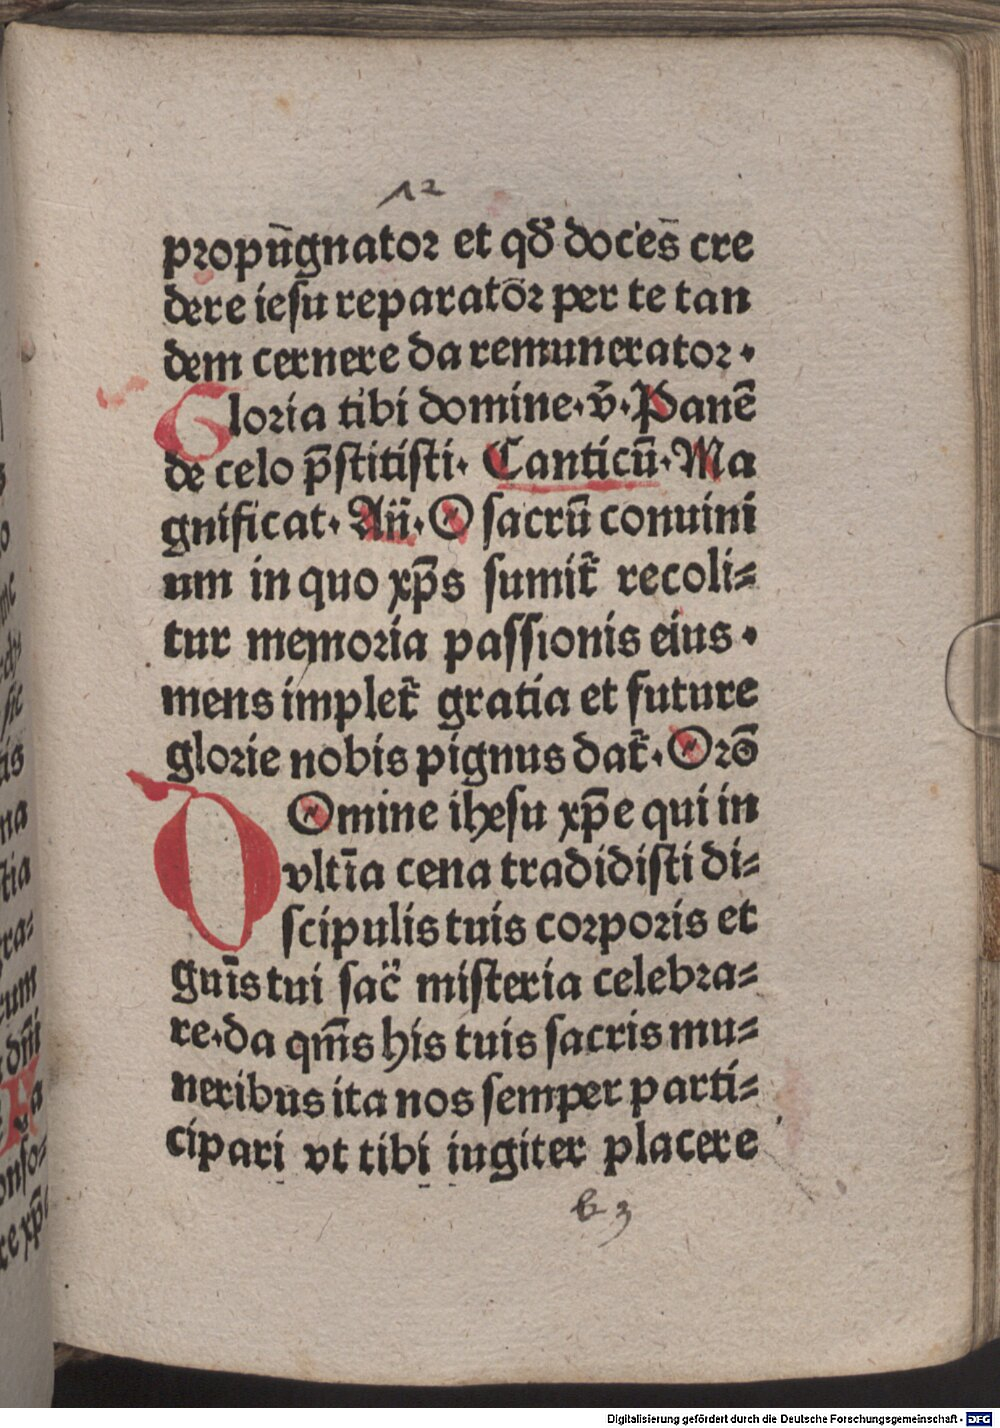 12
propūgnator et qđ doces̄ cre
dere iesu reparatōr per te tan
dem cernere da remunerator.
Gloria tibi domine. v̄. Panē
de celo p̄stitisti. Canticū. Ma
gnificat. An̄. O sacrū conuini
um in quo xp̄s sumit̄ recoli=
tur memoria passionis eius.
mens implet̄ gratia et future
glorie nobis pignus dat̄. Orō
DOmine ihesu xp̄e qui in
vltīa cena tradidisti di=
scipulis tuis corporis et
guīs tui sac̄ misteria celebra=
re. da qm̄s his tuis sacris mu=
neribus ita nos semper parti=
cipari vt tibi iugiter placere
b 3
Digitalisierung gefördert durch die Deutsche Forschungsgemeinschaft - DFG